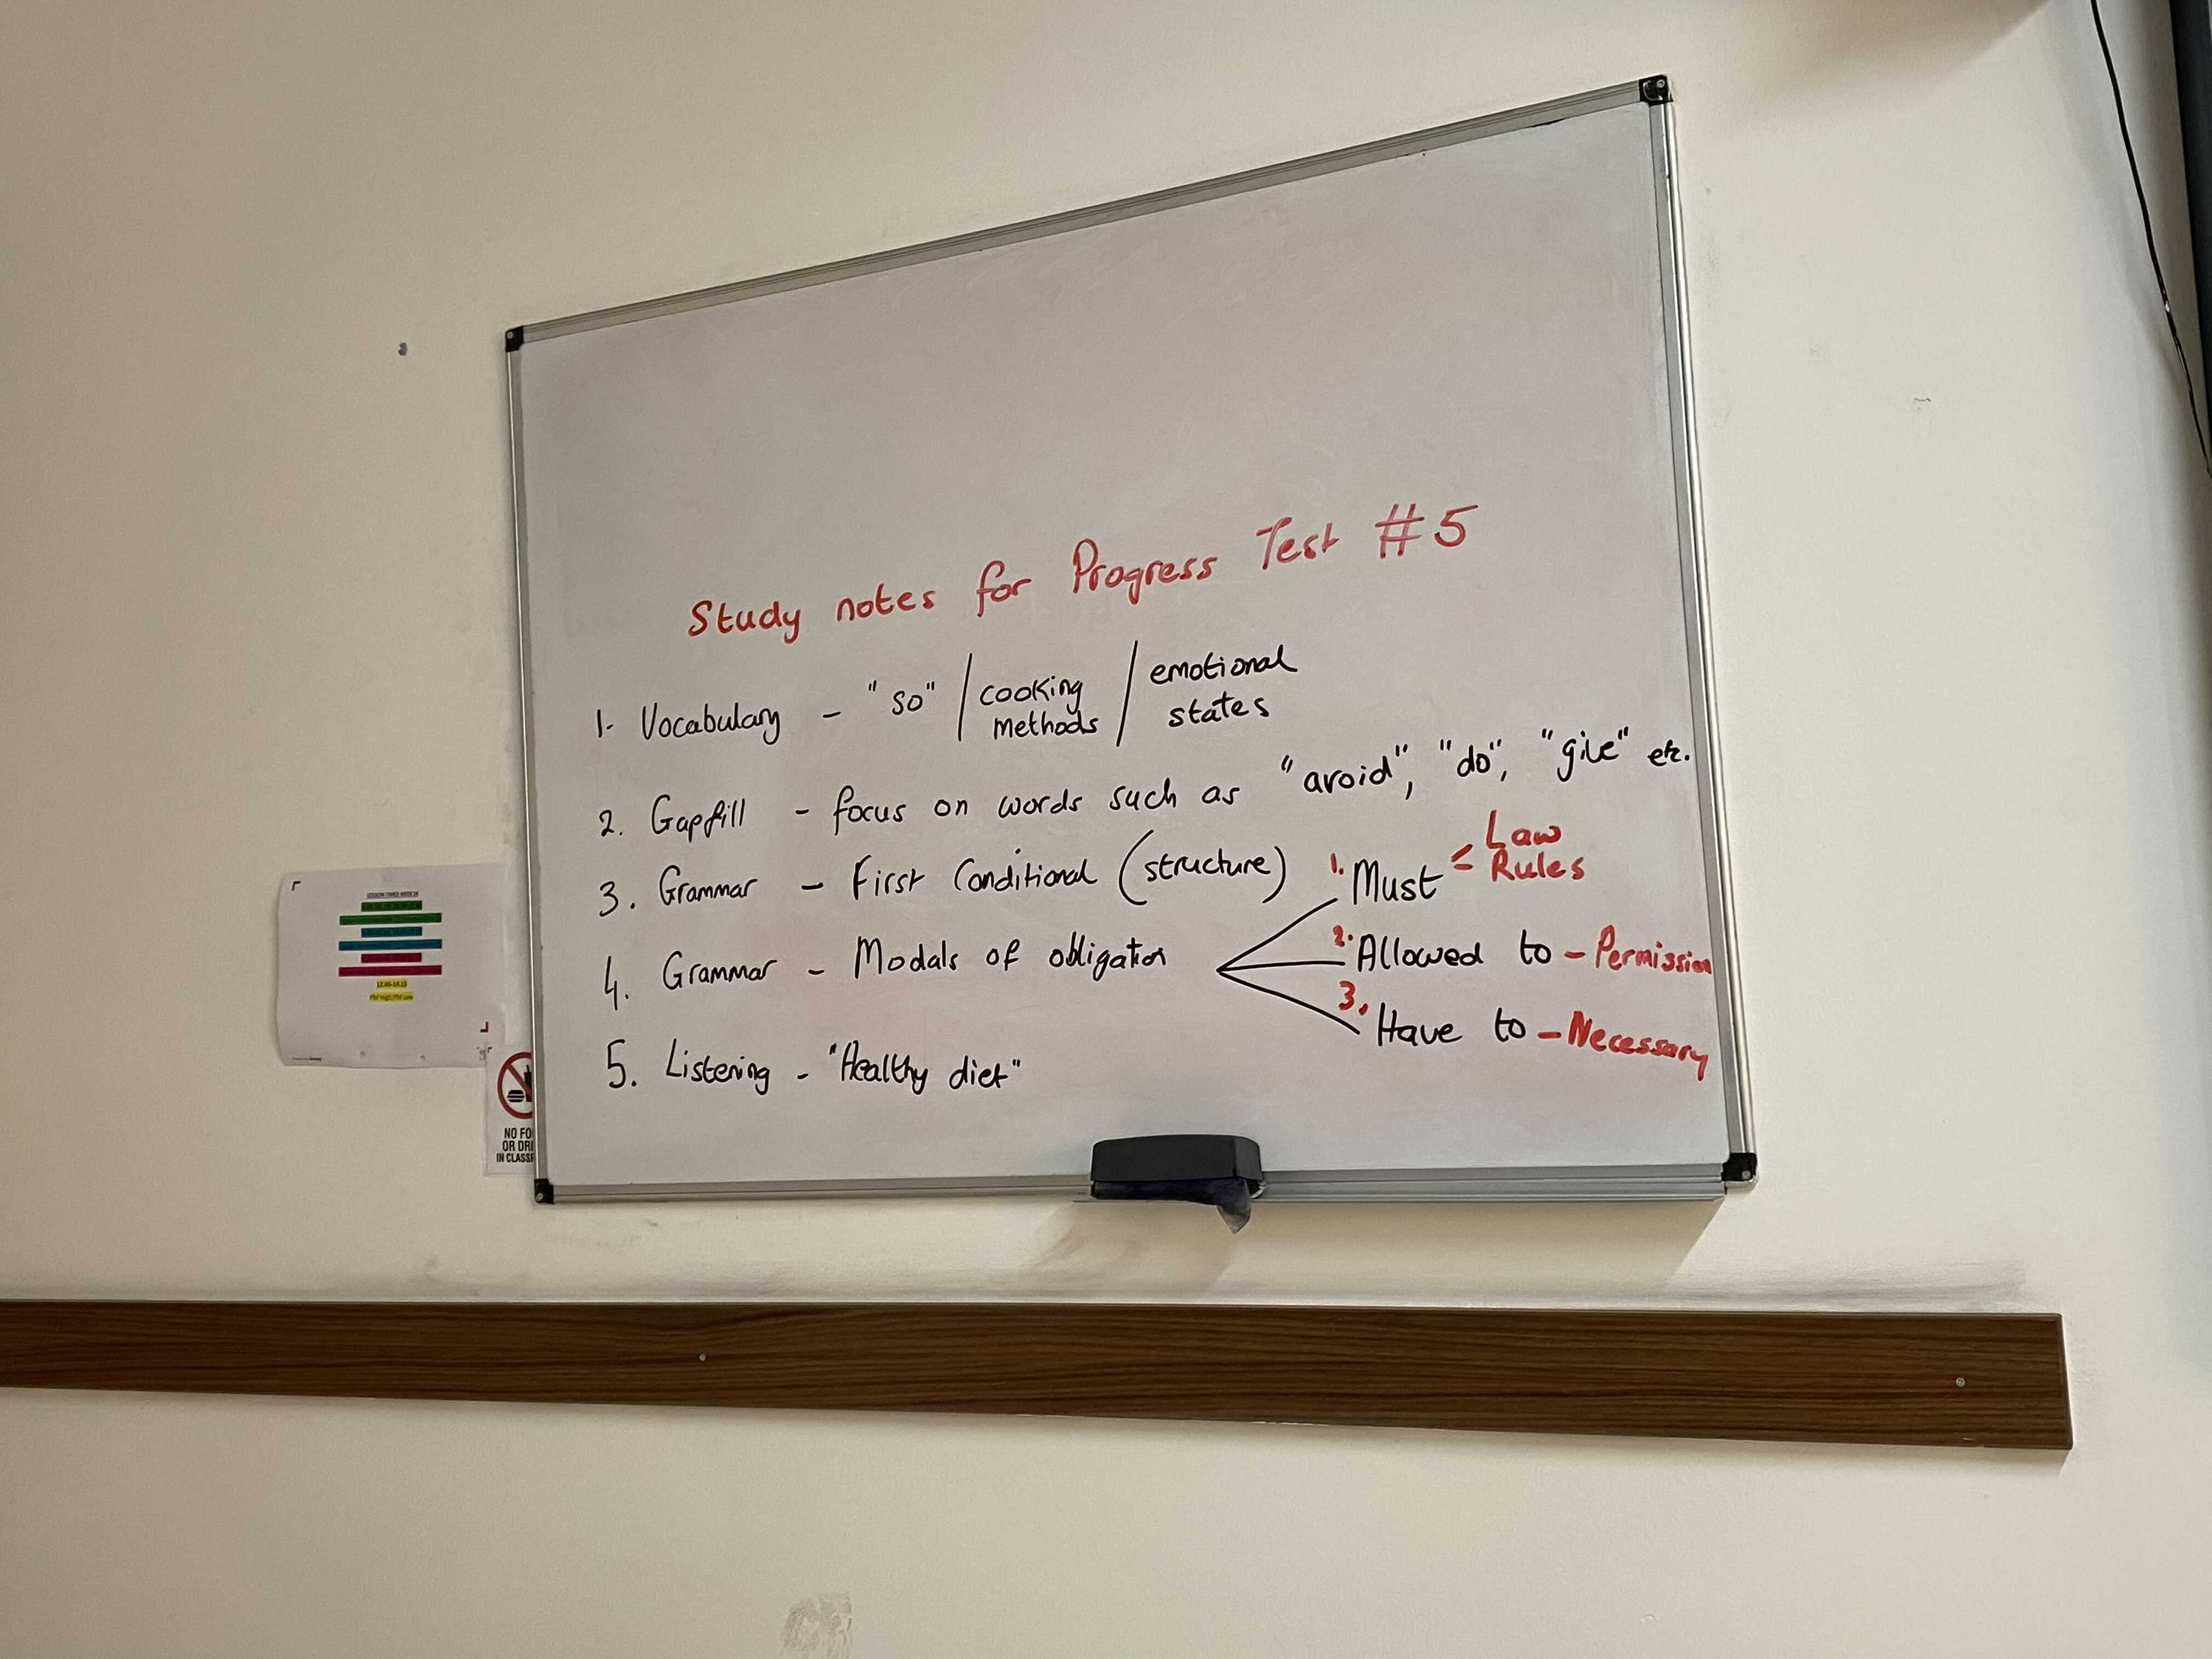 Study notes for Progress Test #5
1. Vocabulary - "so" / cooking methods / emotional states
2. Gapfill - focus on words such as "avoid", "do", "give" etc.
3. Grammar - First Conditional (structure)
4. Grammar - Modals of obligation
1. Must < Law Rules
2. Allowed to - Permission
3. Have to - Necessary
5. Listening - "Healthy diet"
LESSON TIMES WEEK
12.45-14.15
NO FO
OR DRI
IN CLASS